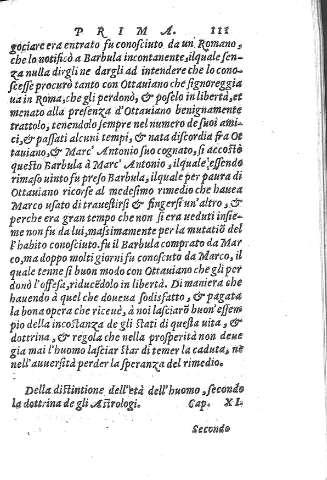 PRIMA. 111
gociare era entrato fu conosciuto da un Romano,
che lo notificò a Barbula incontanente, ilquale sen-
za nulla dirgli ne dargli ad intendere che lo cono-
scesse procurò tanto con Ottauiano che signoreggia
ua in Roma, che gli perdonò, & poselo in libertà, et
menato alla presenza d'Ottauiano benignamente
trattolo, tenendolo sempre nel numero de suoi ami-
ci, & passati alcuni tempi, & nata discordia fra Ot
tauiano, & Marc' Antonio suo cognato, si accostò
questo Barbula à Marc' Antonio, ilquale essendo
rimaso uinto fu preso Barbula, ilquale per paura di
Ottauiano ricorse al medesimo rimedio che hauea
Marco usato di trauestirsi & fingersi un'altro, &
perche era gran tempo che non si era ueduti insie-
me non fu da lui, massimamente per la mutatiō del
l'habito conosciuto. fu il Barbula comprato da Mar
co, ma doppo molti giorni fu conosciuto da Marco, il
quale tenne si buon modo con Ottauiano che gli per
donò l'offesa, riducēdolo in libertà. Di maniera che
hauendo à quel che doueua sodisfatto, & pagata
la bona opera che riceuè, à noi lasciarō buon'essem
pio della incostanza de gli stati di questa uita, &
dottrina, & regola che nella prosperità non deue
gia mai l'huomo lasciar star di temer la caduta, ne
nell'auuersità perder la speranza del rimedio.
Della distintione dell'età dell'huomo, secondo
la dottrina de gli Astrologi. Cap. XL.
Secondo